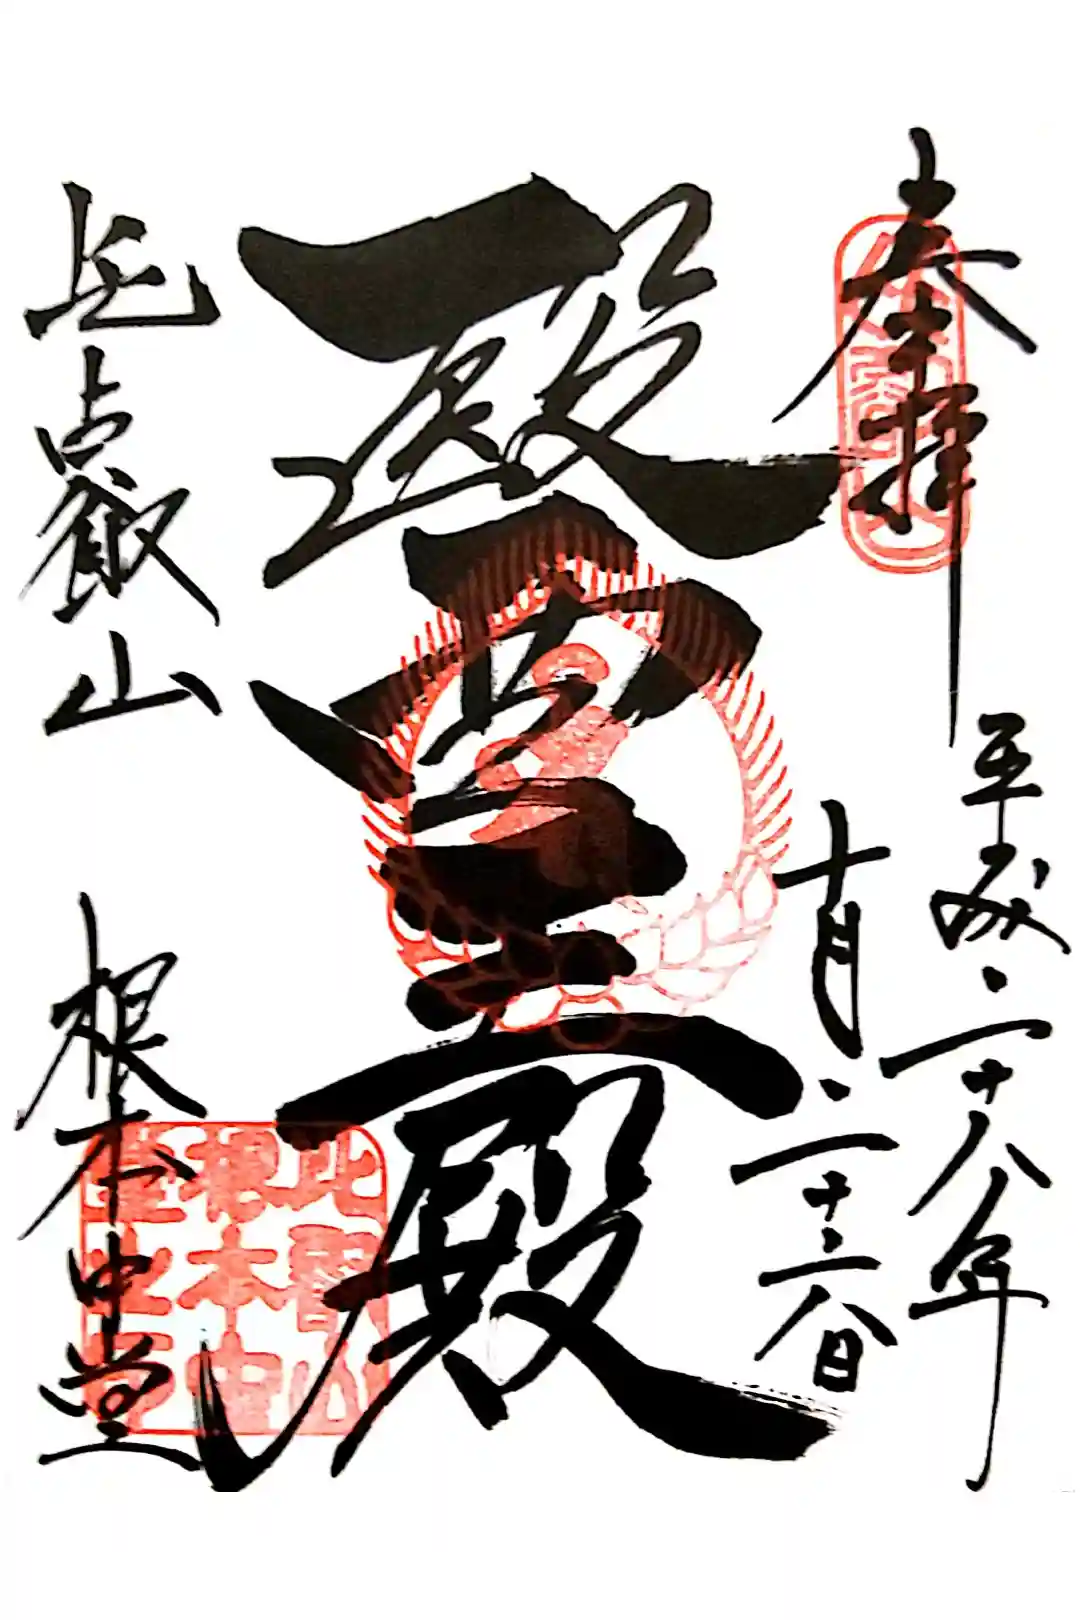 奉拝
平成二十八年
十月二十六日
醫王殿
比叡山
根本中堂
比叡山
根本中
堂之印